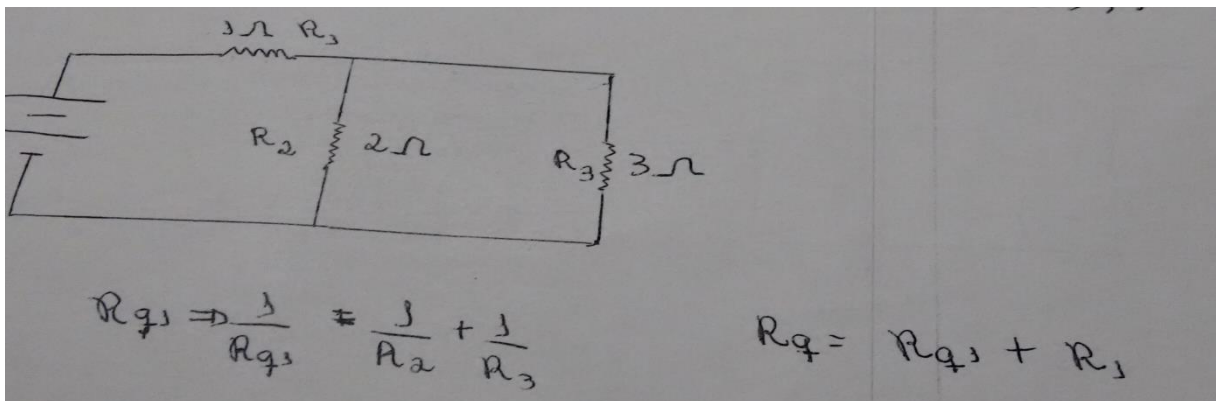 1Ω R₁
R₂ 2Ω
R₃ 3Ω
Rq₁ ⇒ 1/Rq₁ = 1/R₂ + 1/R₃
Rq = Rq₁ + R₁